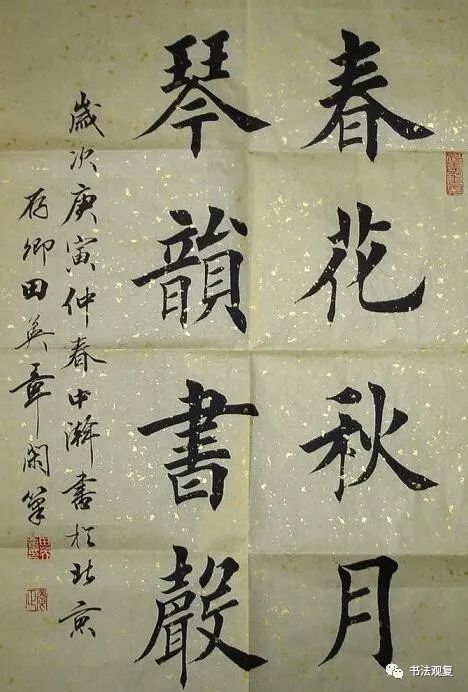 春花秋月
琴韻書聲
歲次庚寅仲春中澣書於北京
存卿田英章閑筆
书法观复